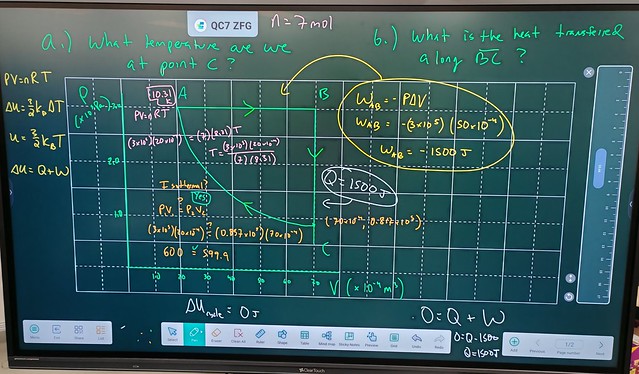 QC7 ZFG
n = 7 mol
a.) What temperature are we
at point C ?
b.) What is the heat transferred
along BC ?
PV=nRT
ΔU = Q+W
P
3.0
2.0
1.0
10.31
K
A
B
C
PV=nRT
(3×10⁵)(20×10⁻⁴) = (7)(8.31)T
T = (3×10⁵)(20×10⁻⁴)
(7)(8.31)
Isothermal?
Yes!
(3×10⁵)(20×10⁻⁴) = (0.857×10⁵)(70×10⁻⁴)
600 = 599.9
W_AB = - PΔV
W_AB = -(3×10⁵) (50×10⁻⁴)
W_AB = -1500 J
Q = 1500 J
10 20 30 40 50 60 70
V (×10⁻⁴ m³)
ΔU_cycle = 0 J
0 = Q + W
0 = Q - 1500
Q = 1500 J
Menu
Select
Pen
Eraser
Clear All
Shape
Table
Mind Map
Sticky Notes
Preview
Undo
Redo
Add
Previous
1/2
Page number
Next
ClearTouch